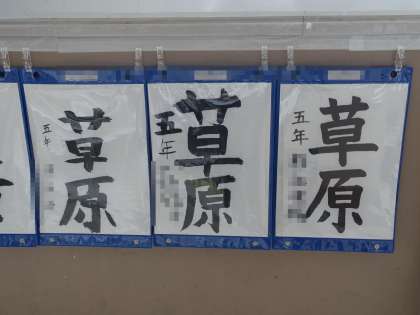 草原
五年
草原
五年
草原
五年